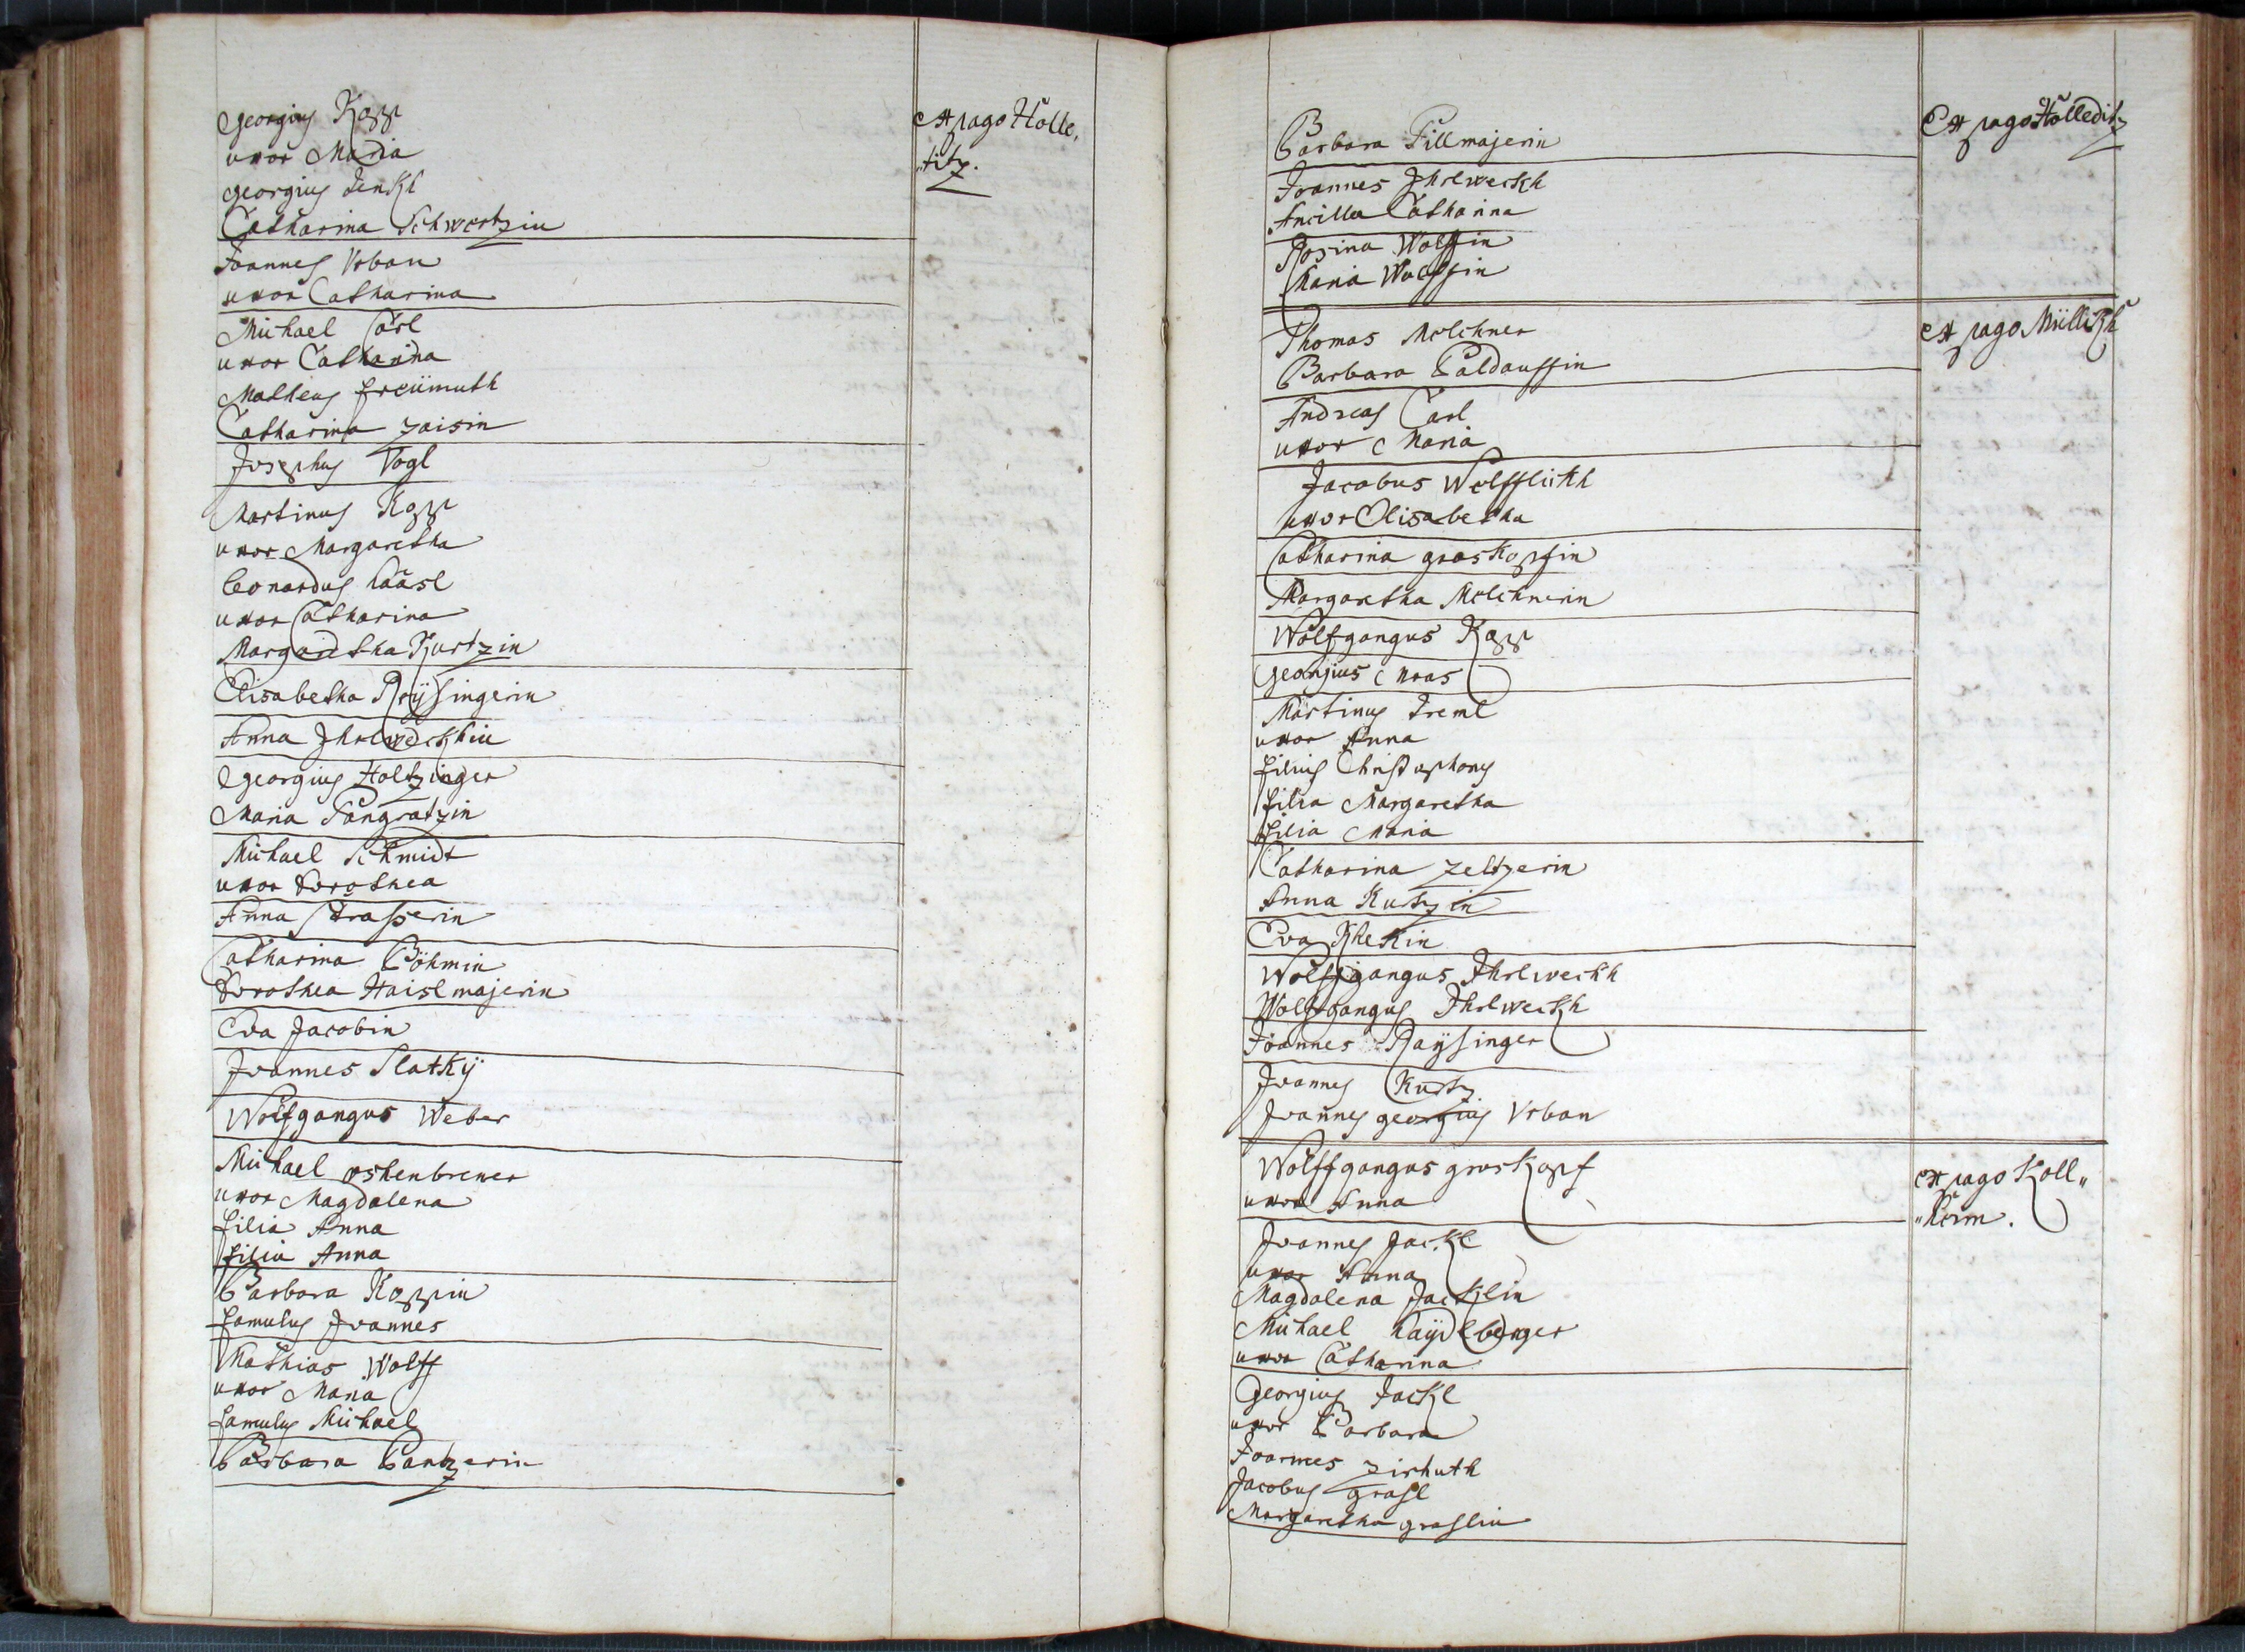 Georgius Kopp
uxor Maria
Georgius Jenkh
Catharina Schwertzin
Ex pago Holle„
„titz.
Joannes Urban
uxor Catharina
Michael Carl
uxor Catharina
Matheus freümuth
Catharina Zaisin
Josephus Vogl
Martinus Kopp
uxor Margaretha
Leonardus hääsl
uxor Catharina
Margaretha Kurtzin
Elisabetha Raÿsingerin
Anna Ihrlweckhin
Georgius Holtzinger
Maria Pangratzin
Michael Schmidt
uxor Dorothea
Anna Strasserin
Catharina Böhmin
Dorothea Haislmajerin
Eva Jacobin
Joannes Slatkÿ
Wolfgangus Weber
Michael oshenbrener
uxor Magdalena
filia Anna
filia Anna
Barbara Koppin
famulus Joannes
Mathias Wolff
uxor Maria
famulus Michael
Barbara Pantzerin
Barbara Pillmajerin
Ex pago Holleditz
Joannes Ihrlweckh
Ancilla Catharina
Rosina Wolffin
Maria Wolffin
Thomas Melchner
Ex pago Mülickh
Barbara Paldauffin
Andreas Carl
uxor Maria
Jacobus Wolfflickh
uxor Elisabetha
Catharina groskopfin
Margaretha Melchnerin
Wolfgangus Kopp
Georgius Mras
Martinus Treml
uxor Anna
filius Christophorus
filia Margaretha
filia Maria
Catharina Zeltzerin
Anna Kurtzin
Eva Khekin
Wolffgangus Ihrlweckh
Wolffgangus Ihrlweckh
Joannes Raÿsinger
Joannes Kurtz
Joannes georgius Urban
Wolffgangus groskopf
uxor Anna
Ex pago Koll„
„heim.
Joannes Jackl
uxor Anna
Magdalena Jacklin
Michael haÿdlberger
uxor Catharina
Georgius Jackl
uxor Barbara
Joannes Zirhuth
Jacobus grasl
Margaretha graslin